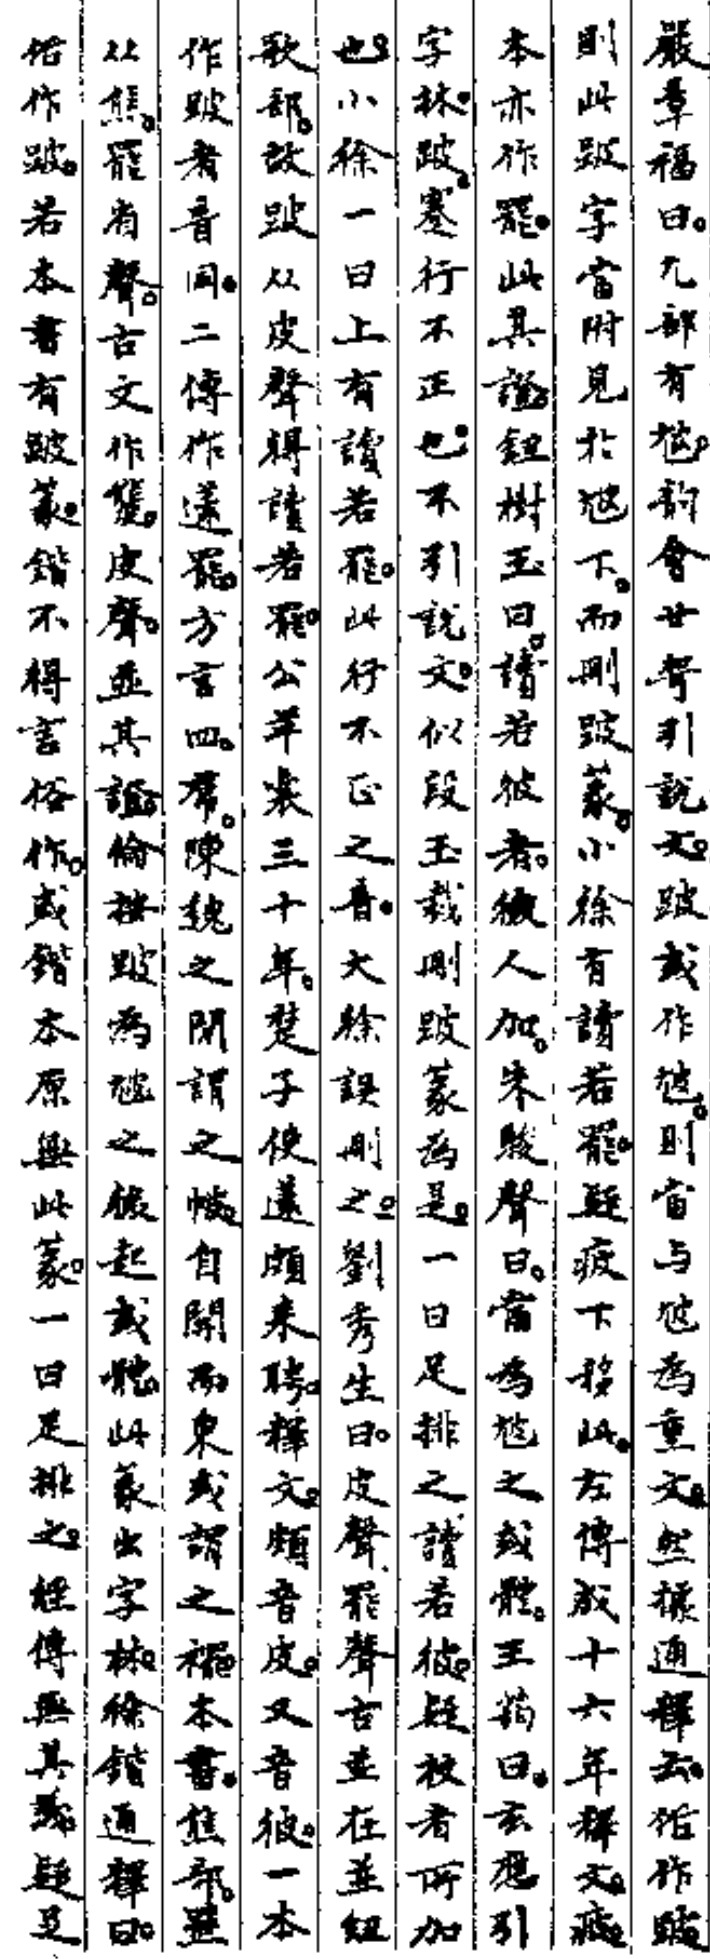 嚴章福曰。尢部有𡯄。韵會廿哿引說文。跛或作𡯄。則當与𡯄為重文。然據通釋云。俗作跛
則此跛字當附見於𡯄下。而刪跛篆。小徐有讀若罷。疑疲下移此。左傳成十六年釋文。疲
本亦作罷。此其證。鈕樹玉曰。讀若彼者。後人加。朱駿聲曰。當為𡯄之或體。王筠曰。玄應引
字林。跛。蹇行不正也。不引說文。似段玉裁刪跛篆為是。一曰足排之讀若彼。疑校者所加
也。小徐一曰上有讀若罷。此行不正之音。大徐誤刪之。劉秀生曰。皮聲罷聲古並在並紐
歌部。故跛从皮聲得讀若罷。公羊襄三十年。楚子使薳頗来聘。釋文。頗音皮。又音彼。一本
作跛者音同。二傳作薳罷。方言四。帬。陳魏之間謂之帔。自關而東或謂之襬。本書。隹部。䎱
从隹。罷省聲。古文作䎱。皮聲。並其證。倫按跛為𡯄之後起或體。此篆出字林。徐鍇通釋曰。
俗作跛。若本書有跛篆。鍇不得言俗作。或鍇本原無此篆。一曰足排之。經傳無其義。疑足